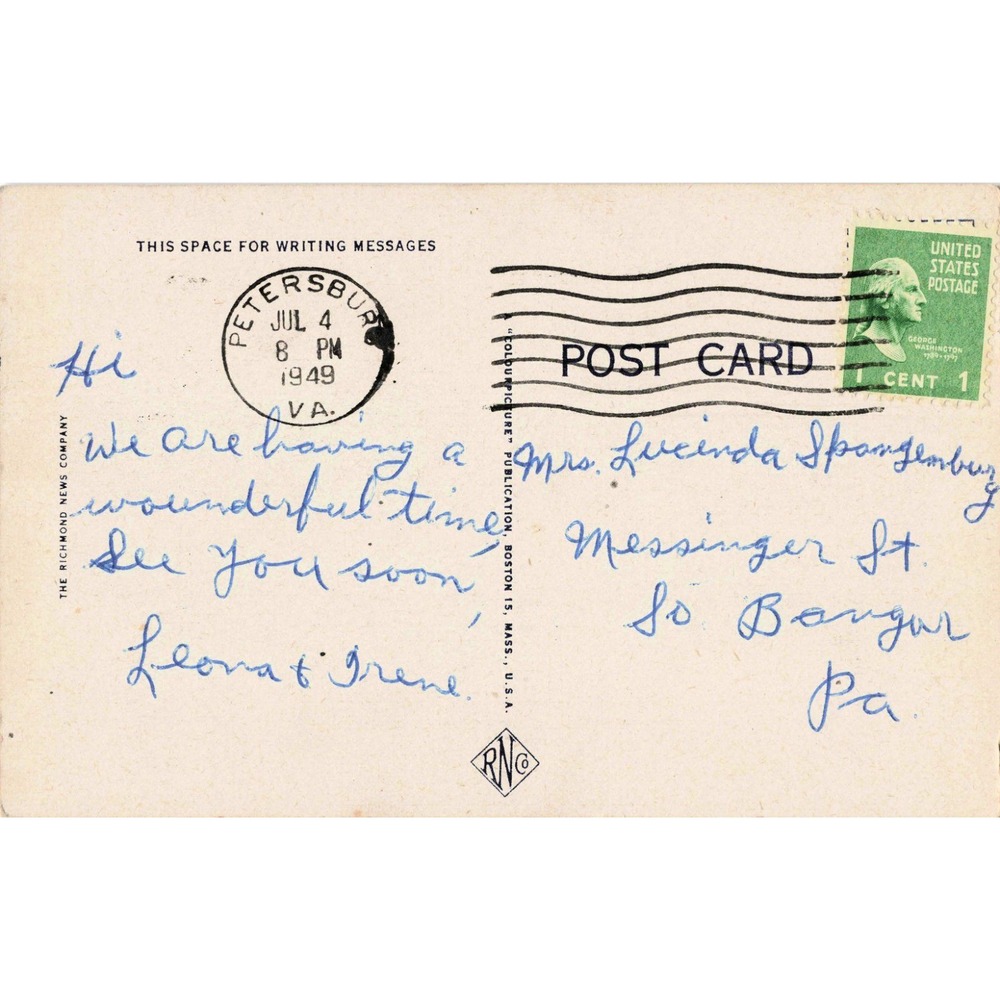 THIS SPACE FOR WRITING MESSAGES
PETERSBURG
JUL 4
8 PM
1949
VA.
Hi
We are having a
wounderful time,
See you soon,
Leona & Irene.
THE RICHMOND NEWS COMPANY
A "COLOURPICTURE" PUBLICATION, BOSTON 15, MASS., U.S.A.
RNCo
POST CARD
UNITED
STATES
POSTAGE
GEORGE
WASHINGTON
1789-1797
1 CENT 1
Mrs. Lucinda Spangenburg
Messinger St.
So Bangor
Pa.